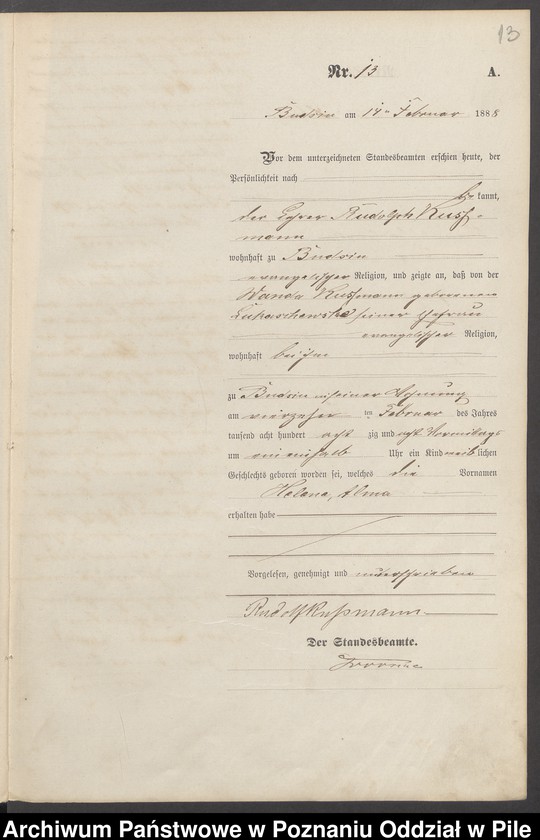 13
Nr. 13 A.
Budsin am 14ten Februar 1888
Vor dem unterzeichneten Standesbeamten erschien heute, der
Persönlichkeit nach
be kannt,
der Rudolph Kuss-
mann
wohnhaft zu Budsin
evangelischer Religion, und zeigte an, daß von der
Wanda Kussmann geborenen
seiner Ehefrau
evangelischer Religion,
wohnhaft bei ihm
zu Budsin in seiner Wohnung
am vierzehn ten Februar des Jahres
tausend acht hundert acht zig und acht Vormittags
um Uhr ein Kind weib lichen
Geschlechts geboren worden sei, welches die Vornamen
Helene, Alma
erhalten habe
Vorgelesen, genehmigt und unterschrieben
Rudolf Kußmann
Der Standesbeamte.
Archiwum Państwowe w Poznaniu Oddział w Pile